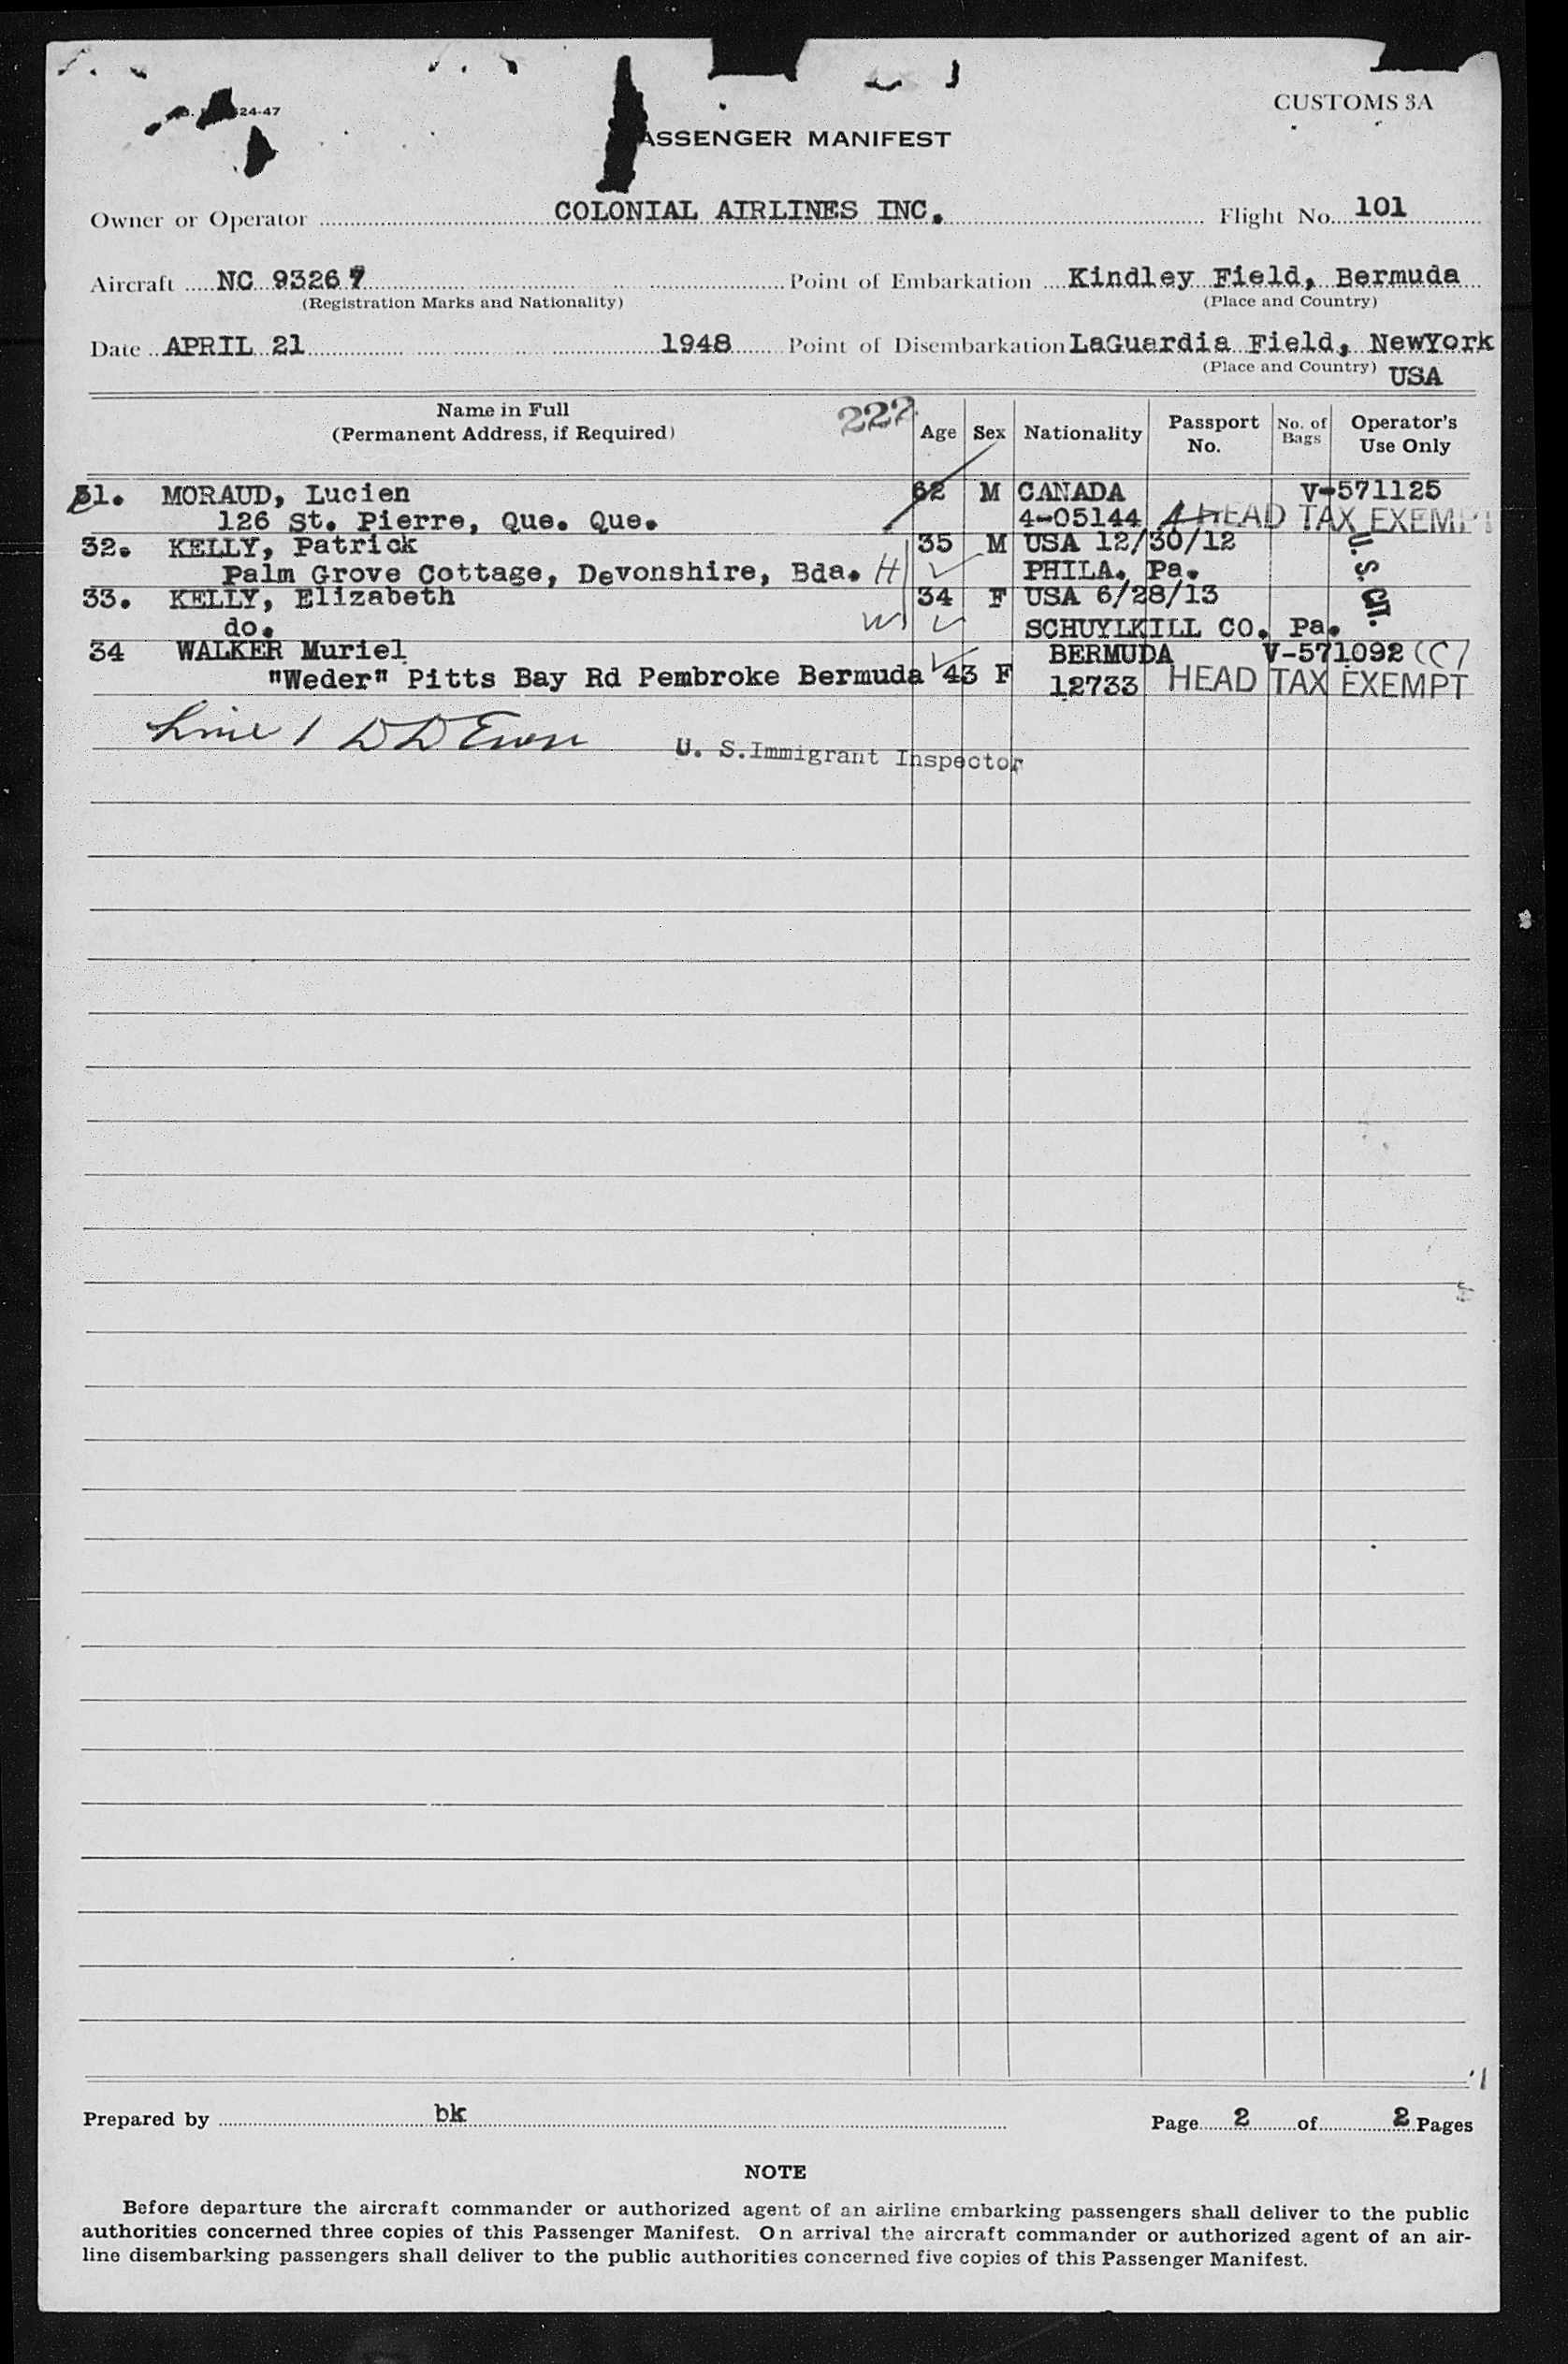 24-47
CUSTOMS 3A
ASSENGER MANIFEST
Owner or Operator COLONIAL AIRLINES INC. Flight No. 101
Aircraft NC 93267 Point of Embarkation Kindley Field, Bermuda
(Registration Marks and Nationality) (Place and Country)
Date APRIL 21 1948 Point of Disembarkation LaGuardia Field, NewYork
(Place and Country) USA
Name in Full
(Permanent Address, if Required) 222 Age Sex Nationality Passport No. No. of Bags Operator's Use Only
31. MORAUD, Lucien 62 M CANADA V-571125
126 St. Pierre, Que. Que. 4-05144 HEAD TAX EXEMPT
32. KELLY, Patrick 35 M USA 12/30/12 U.S. CIT.
Palm Grove Cottage, Devonshire, Bda. H PHILA. Pa.
33. KELLY, Elizabeth 34 F USA 6/28/13
do. W SCHUYLKILL CO. Pa.
34 WALKER Muriel BERMUDA V-571092 (C)
"Weder" Pitts Bay Rd Pembroke Bermuda 43 F 12733 HEAD TAX EXEMPT
Line 1 U. S. Immigrant Inspector
Prepared by bk Page 2 of 2 Pages
NOTE
Before departure the aircraft commander or authorized agent of an airline embarking passengers shall deliver to the public
authorities concerned three copies of this Passenger Manifest. On arrival the aircraft commander or authorized agent of an air-
line disembarking passengers shall deliver to the public authorities concerned five copies of this Passenger Manifest.